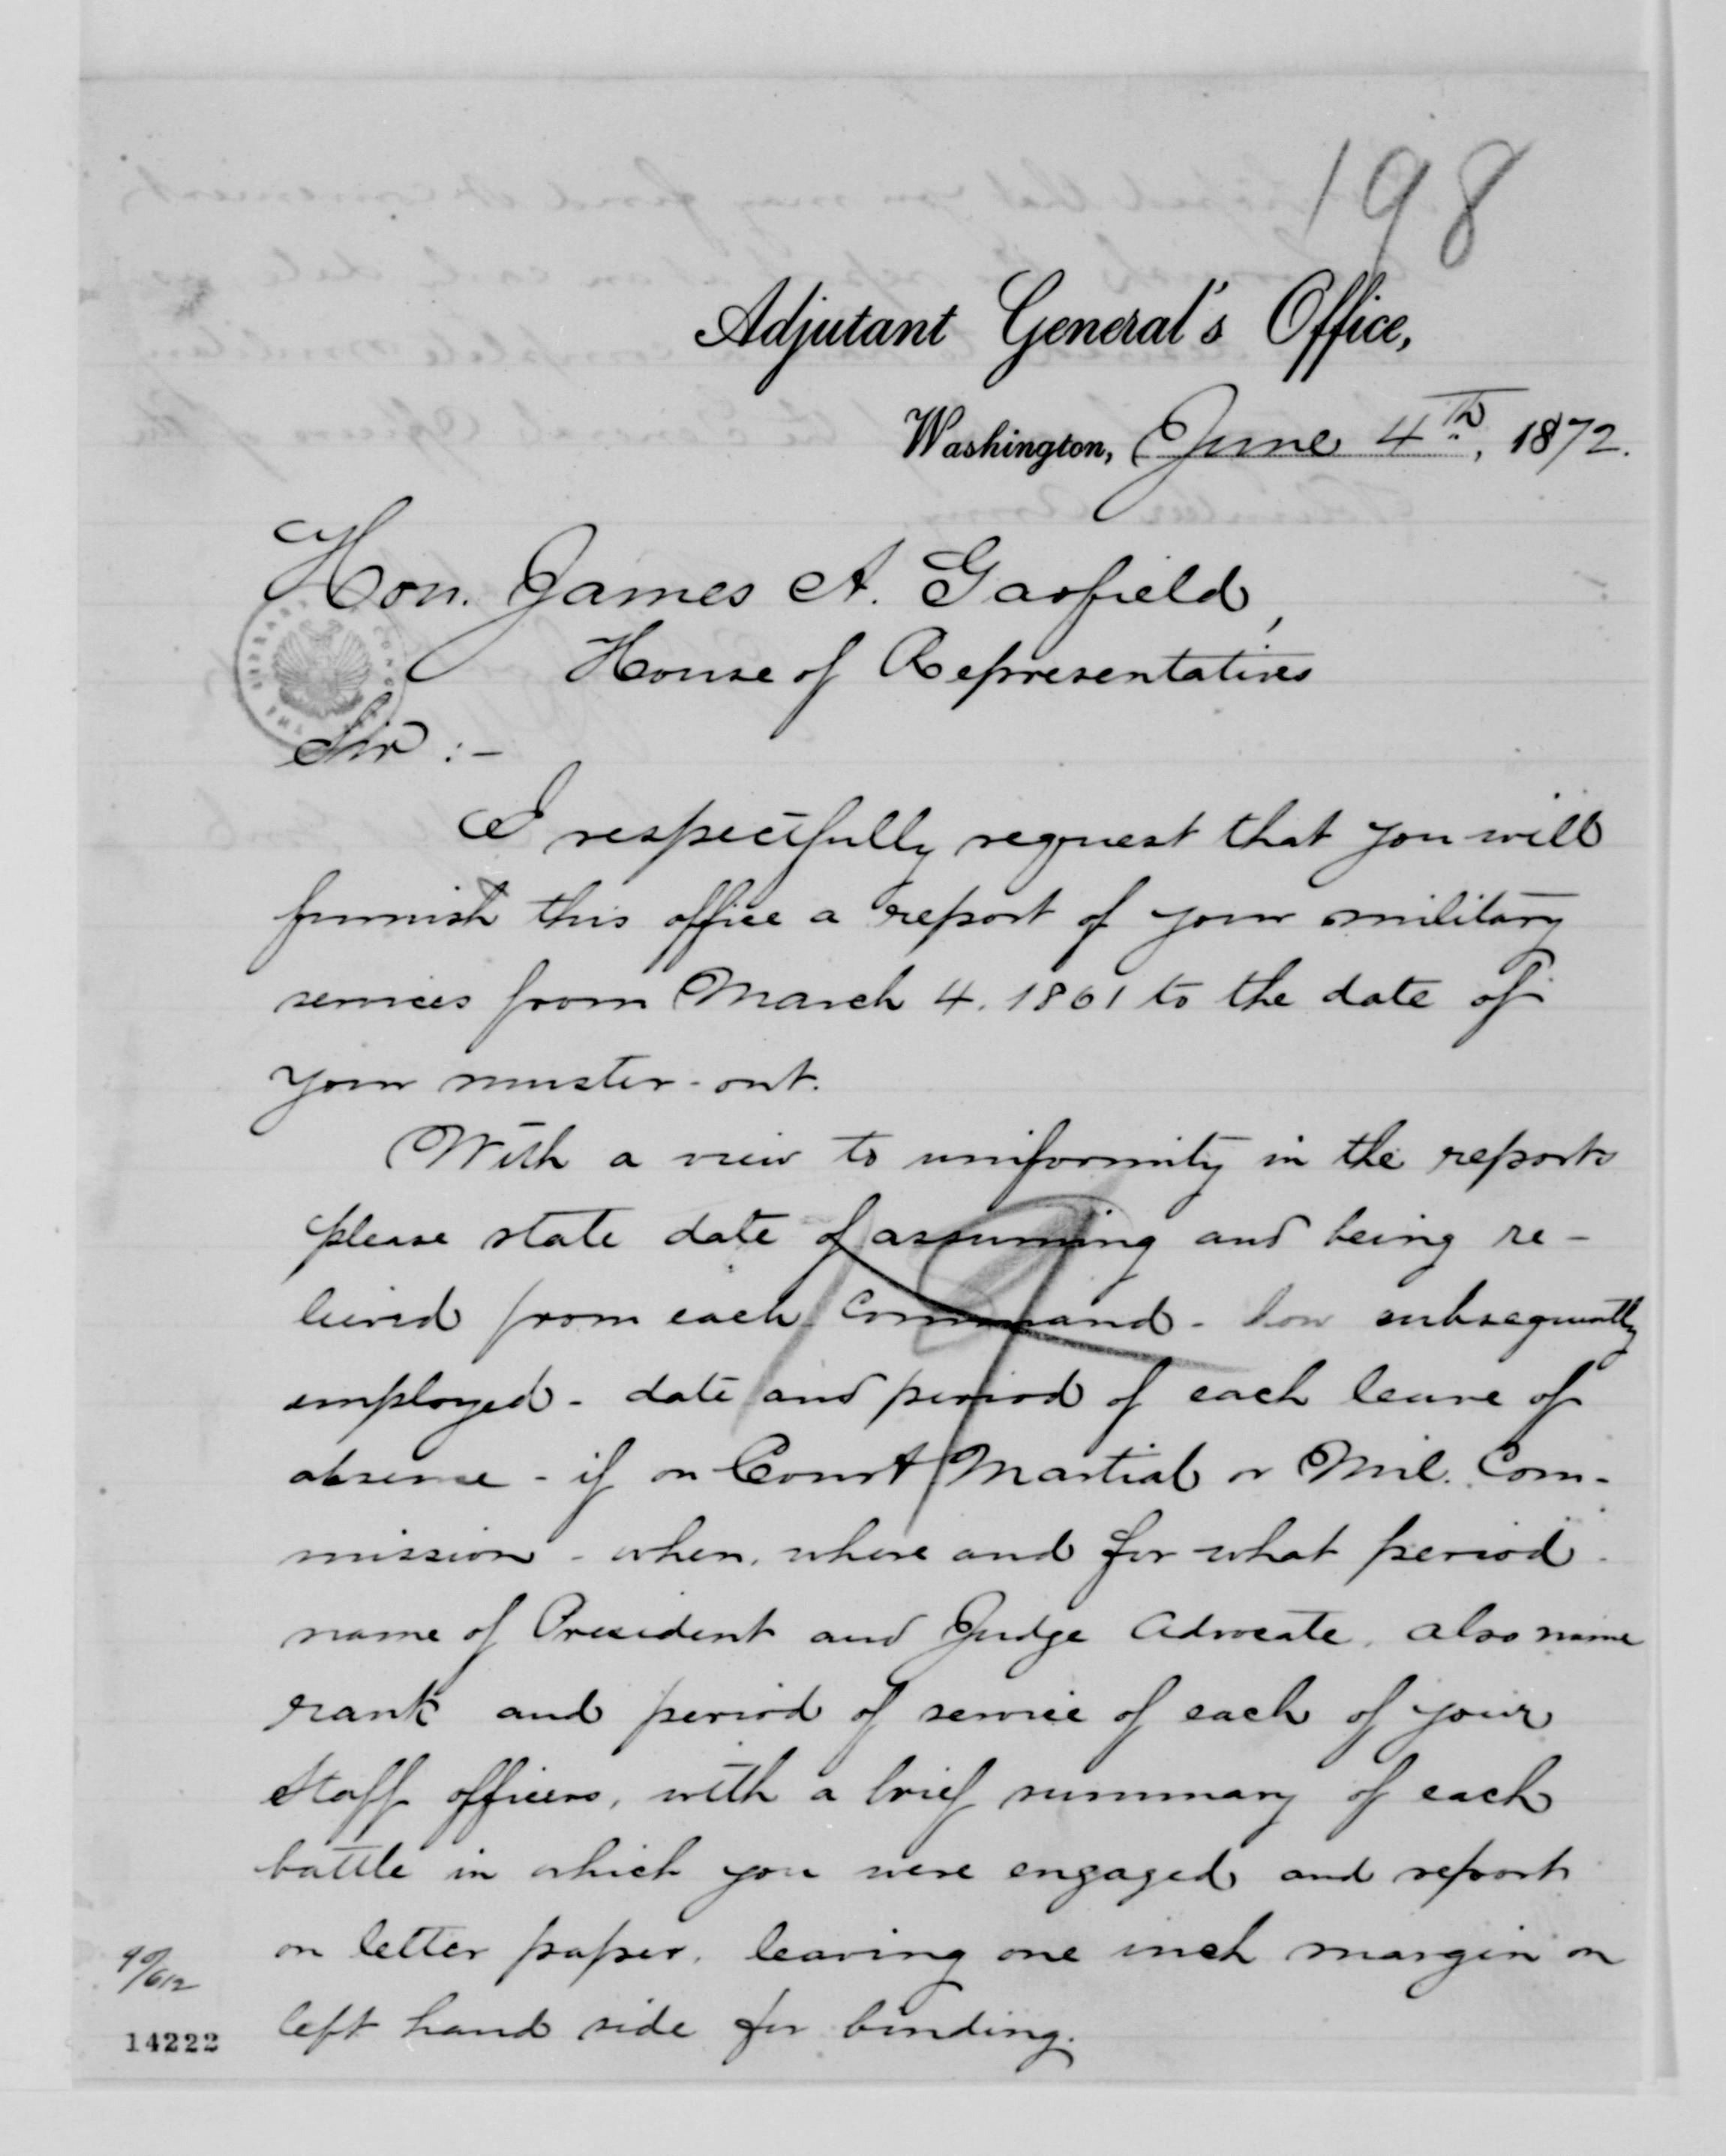 198
Adjutant General's Office,
Washington, June 4th, 1872.
Hon. James A. Garfield,
House of Representatives
Sir :-
I respectfully request that you will
furnish this office a report of your military
services from March 4. 1861 to the date of
your muster-out.
With a view to uniformity in the reports
please state date of assuming and being re-
lieved from each command - how subsequently
employed - date and period of each leave of
absence - if on Court Martial or Mil. Com-
mission - when, where and for what period -
name of President and Judge Advocate, also name
rank and period of service of each of your
Staff officers, with a brief summary of each
battle in which you were engaged and report
on letter paper, leaving one inch margin on
left hand side for binding.
90/612
14222